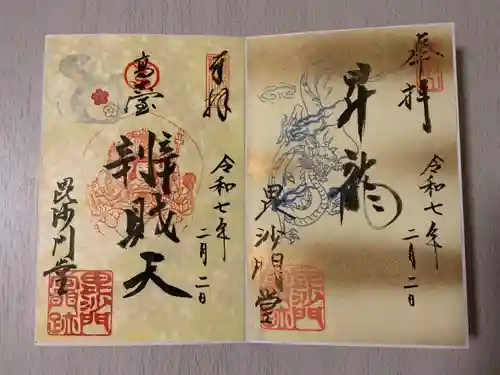 奉拝
昇龍
令和七年
二月二日
毘沙門堂
奉拝
高臺
辨財天
令和七年
二月二日
毘沙門堂
毘沙門